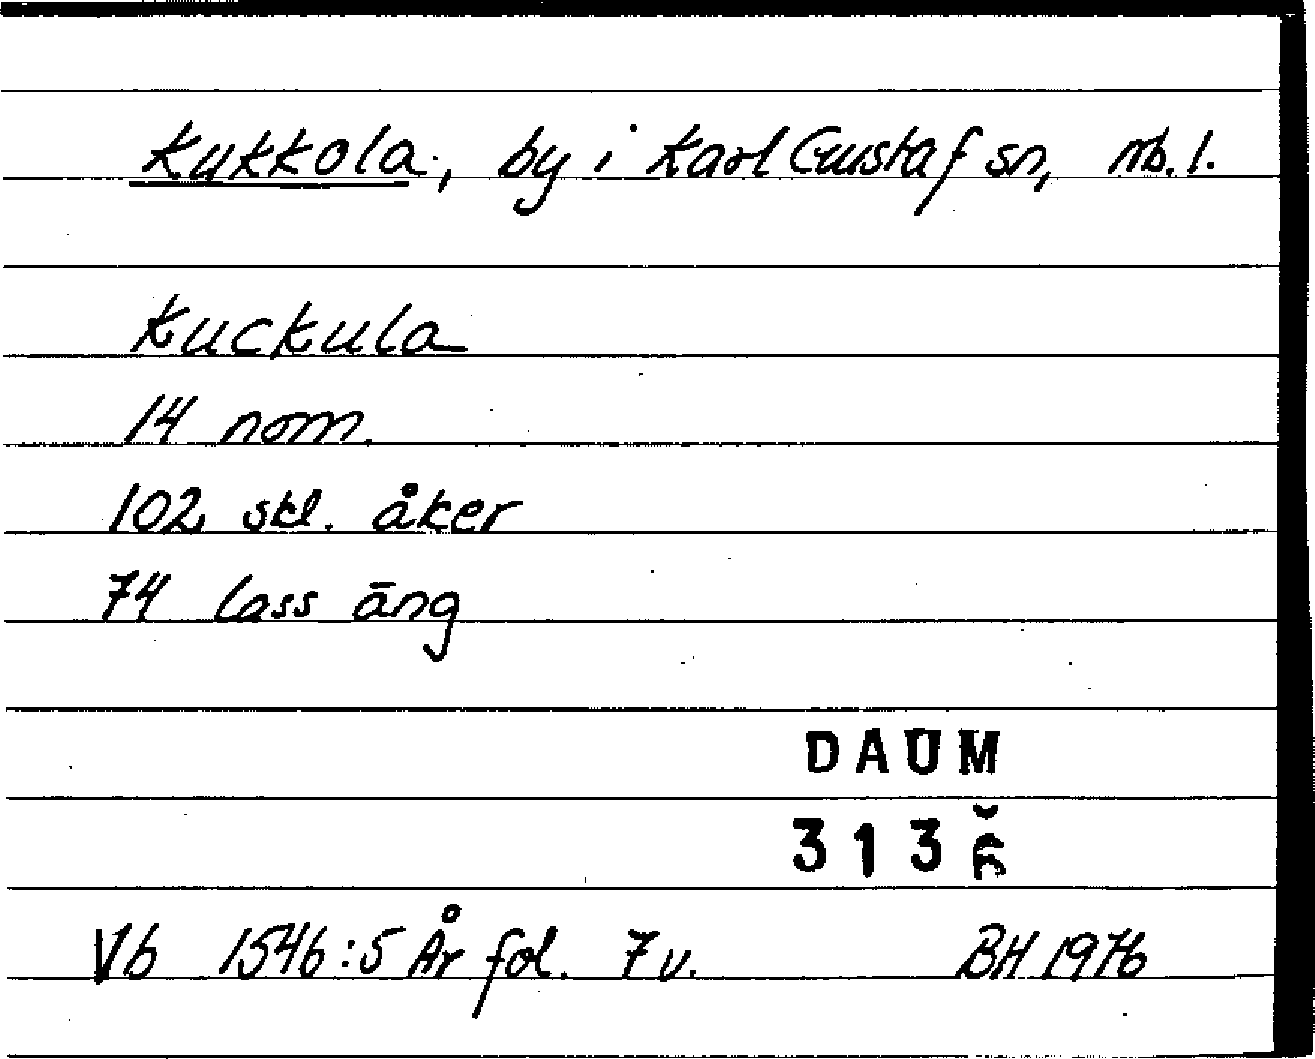 Kukkola, by i Karl Gustaf sn, Nb. l.
Kuckula
14 nom.
102 skl. åker
74 lass äng
DAUM
313
Vb 1546:5 År fol. 7 v. BH 1976